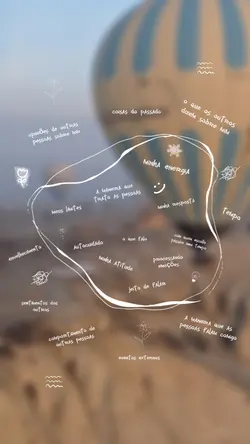 coisas do passado
o que os outros
dizem sobre mim
opiniões de outras
pessoas sobre mim
minha energia
a maneira que
trato as pessoas
meus limites
minha resposta
tempo
autocuidado
o que falo
envelhecimento
minha atitude
processando
emoções
jeito de falar
sentimentos dos
outros
comportamento de
outras pessoas
a maneira que as
pessoas falam comigo
eventos externos